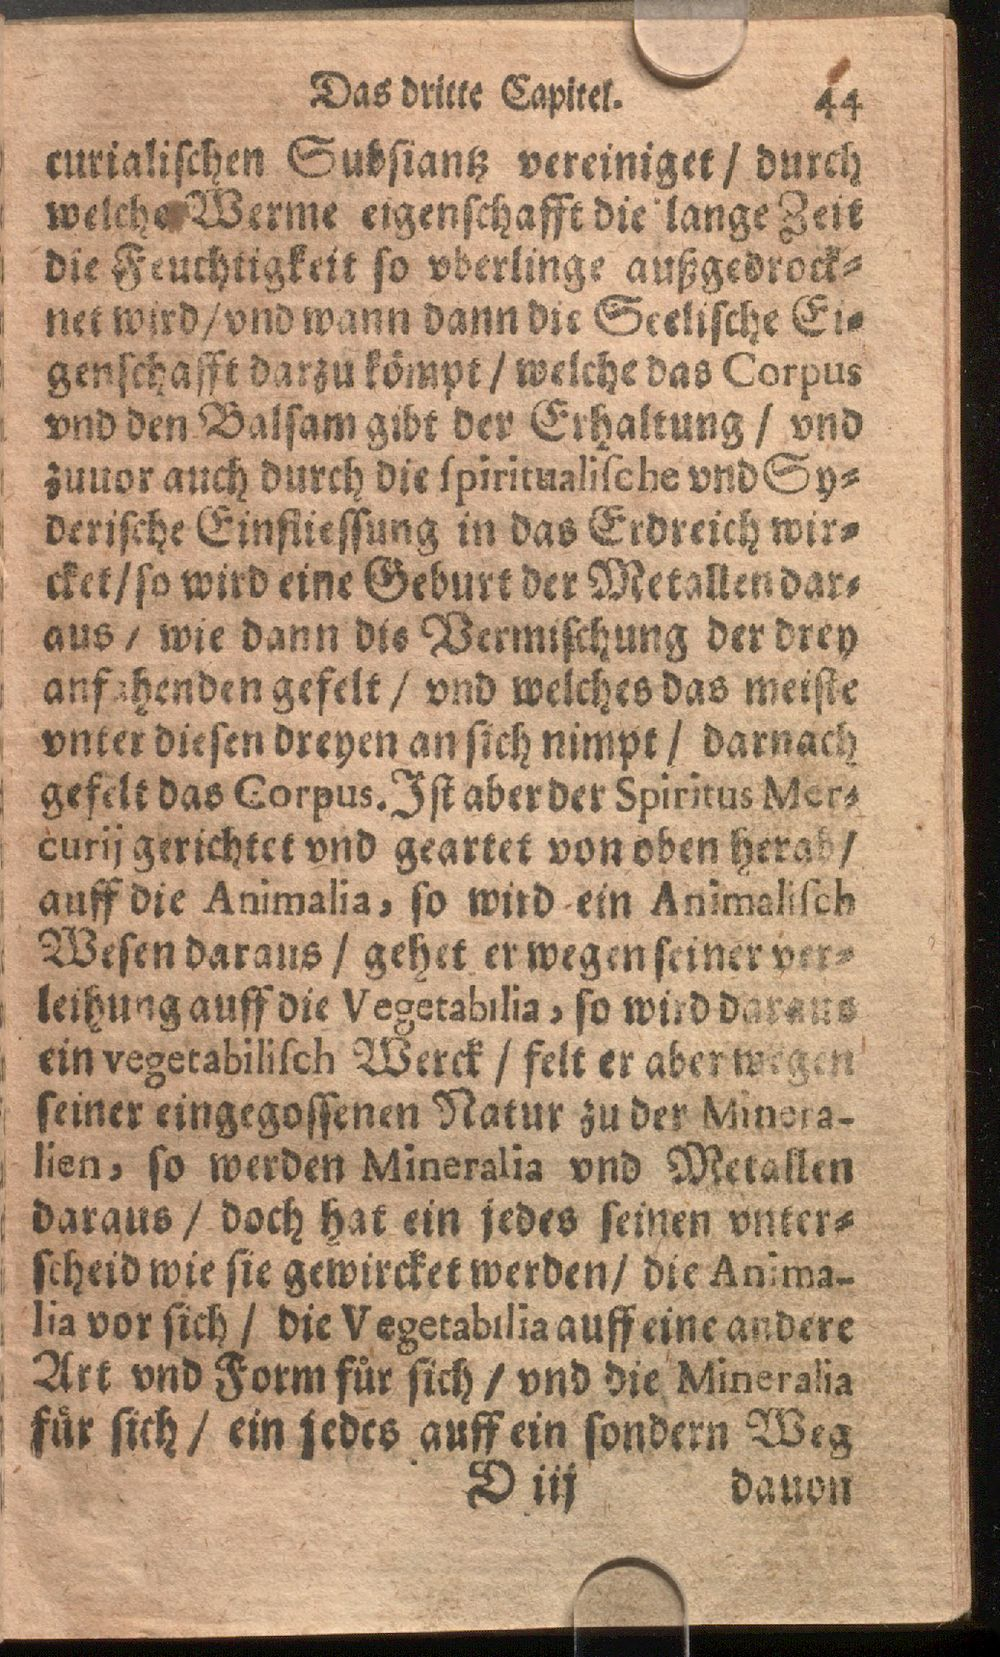 Das dritte Capitel. 44
curialischen Substantz vereiniget / durch
welche Werme eigenschafft die lange Zeit
die Feuchtigkeit so vberlinge außgedrock-
net wird / vnd wann dann die Seelische Ei-
genschafft darzu kömpt / welche das Corpus
vnd den Balsam gibt der Erhaltung / vnd
zuuor auch durch die spiritualische vnd Sy-
derische Einfliessung in das Erdreich wir-
cket / so wird eine Geburt der Metallen dar-
aus / wie dann die Vermischung der drey
anfahenden gefelt / vnd welches das meiste
vnter diesen dreyen an sich nimpt / darnach
gefelt das Corpus. Ist aber der Spiritus Mer-
curij gerichtet vnd geartet von oben herab /
auff die Animalia, so wird ein Animalisch
Wesen daraus / gehet er wegen seiner ver-
leihung auff die Vegetabilia, so wird daraus
ein vegetabilisch Werck / felt er aber wegen
seiner eingegossenen Natur zu der Minera-
lien, so werden Mineralia vnd Metallen
daraus / doch hat ein jedes seinen vnter-
scheid wie sie gewircket werden / die Anima-
lia vor sich / die Vegetabilia auff eine andere
Art vnd Form für sich / vnd die Mineralia
für sich / ein jedes auff ein sondern Weg
D iij dauon